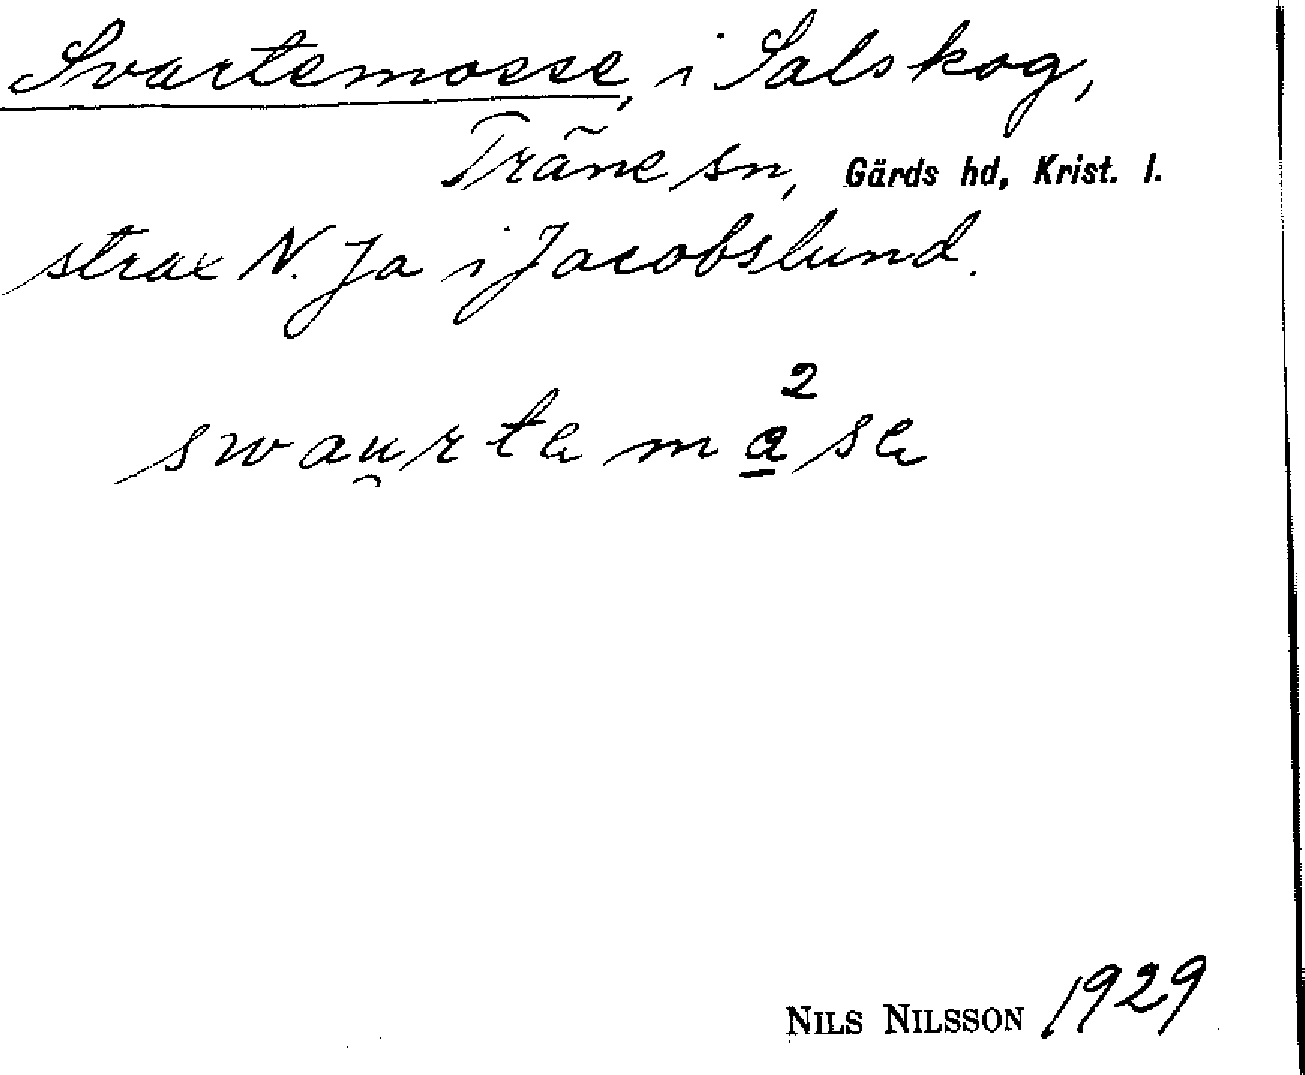 Svartemosse, i Salskog,
Träne sn, Gärds hd, Krist. l.
strax N. Ja i Jacobslund.
2
swau̯rta ma̲sa
NILS NILSSON 1929